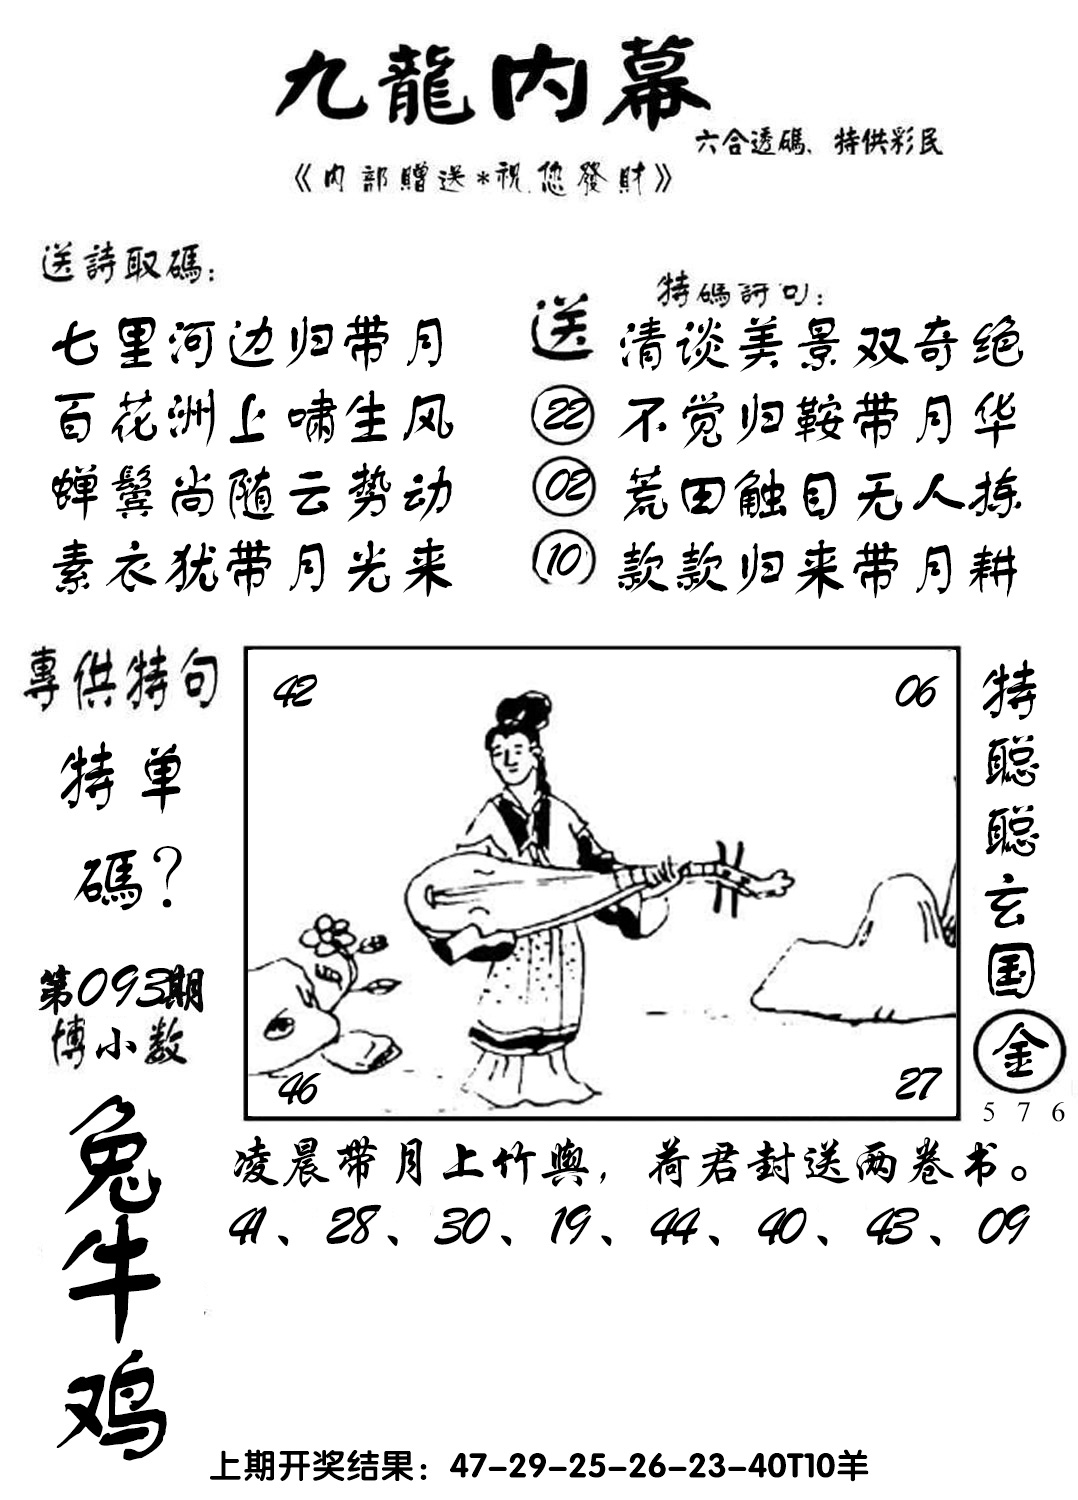 九龍内幕
六合透碼、特供彩民
《内部贈送*祝您發財》
送詩取碼：
七里河边归带月
百花洲上啸生风
蝉鬓尚随云势动
素衣犹带月光来
送
22
02
10
特碼詩句：
清谈美景双奇绝
不觉归鞍带月华
荒田触目无人拣
款款归来带月耕
專供特句
特单
碼？
第093期
博小数
兔
牛
鸡
42
06
46
27
特
聪
聪
玄
国
金
5 7 6
凌晨带月上竹舆，荷君封送两卷书。
41、28、30、19、44、40、43、09
上期开奖结果：47-29-25-26-23-40T10羊